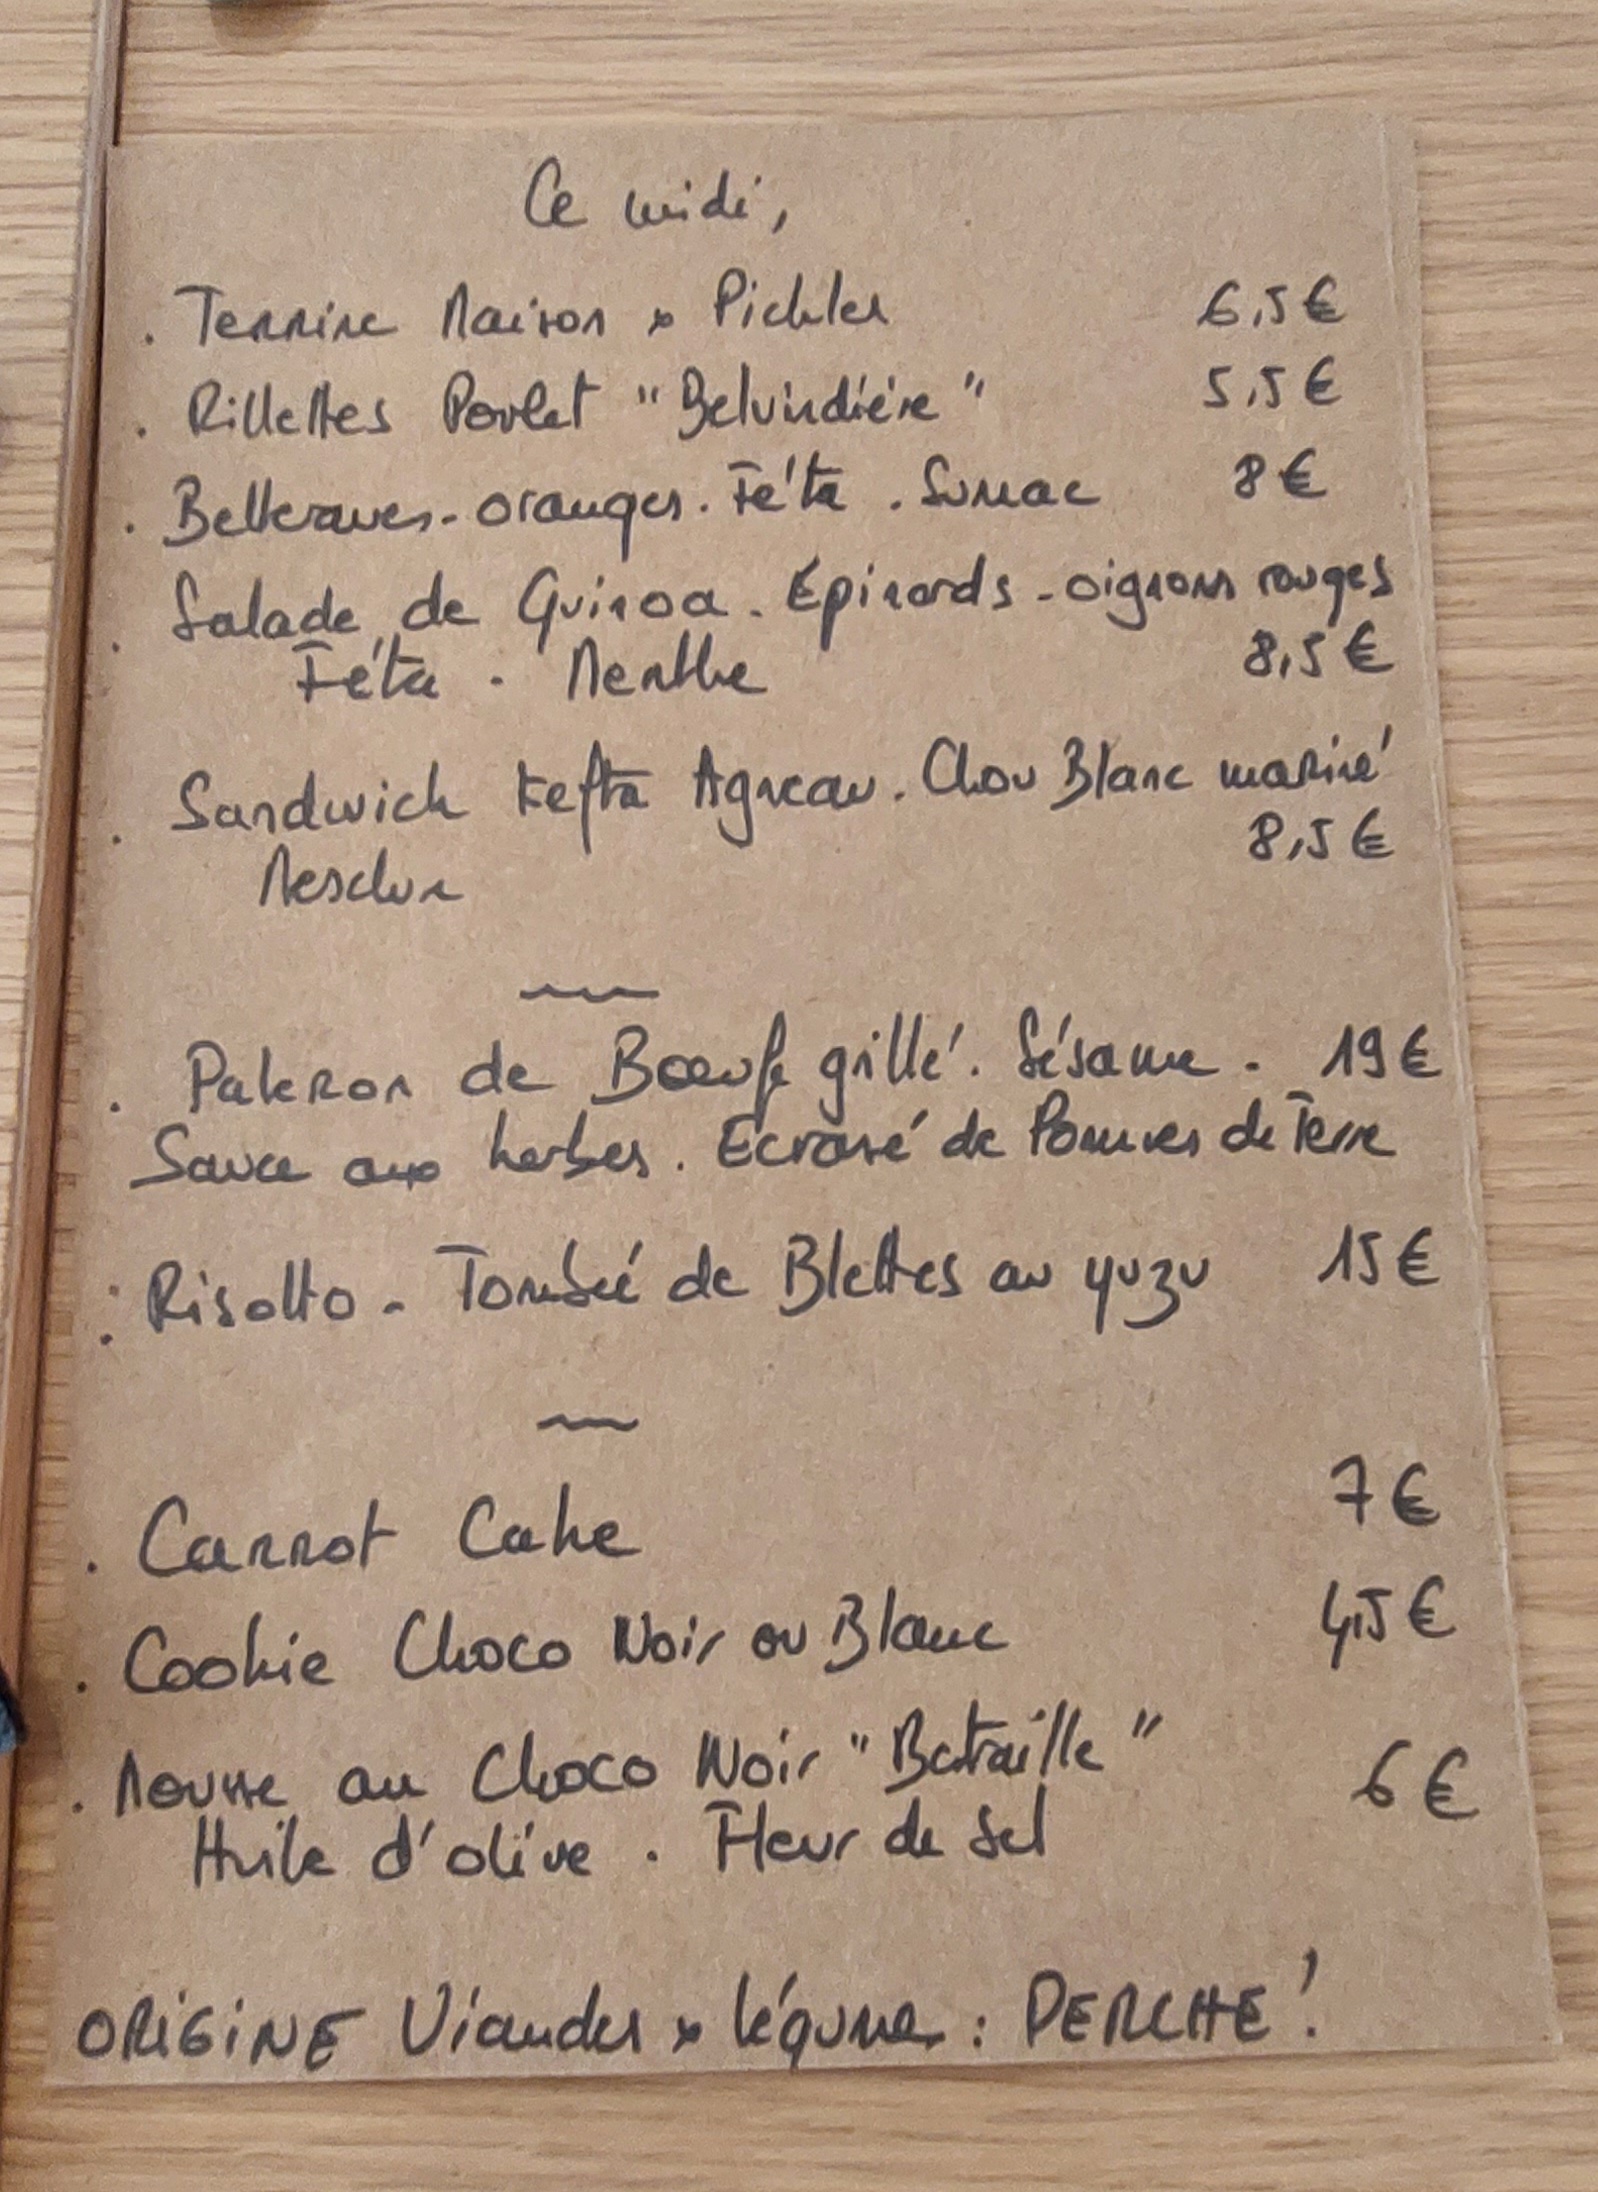 Ce midi,
. Terrine Maison x Pickles 6,5€
. Rillettes Poulet "Belvindière" 5,5€
. Betteraves - oranges . Féta . Sumac 8€
. Salade de Quinoa . Epinards - oignons rouges
Féta . Menthe 8,5€
. Sandwich Kefta Agneau . Chou Blanc mariné
Mesclun 8,5€
. Paleron de Boeuf grillé . Sésame . 19€
Sauce aux herbes . Ecrasé de Pommes de Terre
: Risotto - Tombée de Blettes au yuzu 15€
. Carrot Cake 7€
. Cookie Choco Noir ou Blanc 4,5€
. Mousse au Choco Noir "Bataille" 6€
Huile d'olive . Fleur de Sel
ORIGINE Viandes x légumes : PERCHE !